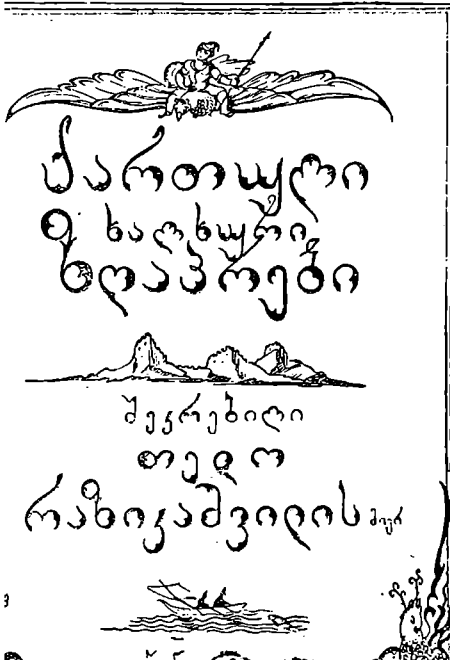 ქართული
ხალხური
ზღაპრები
შეკრებილი
თედო
რაზიკაშვილის მიერ